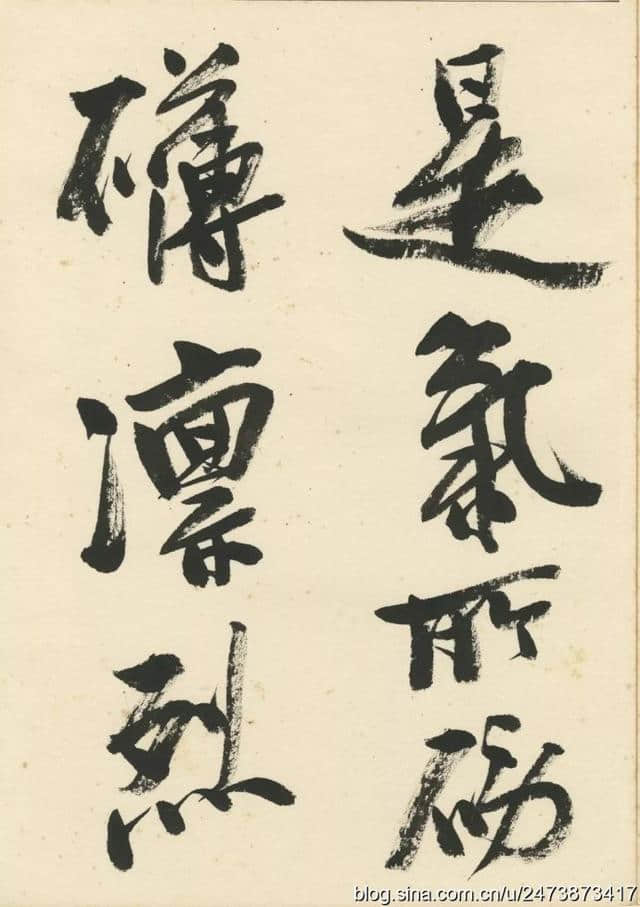 是氣所磅
礴凛烈
blog.sina.com.cn/u/2473873417